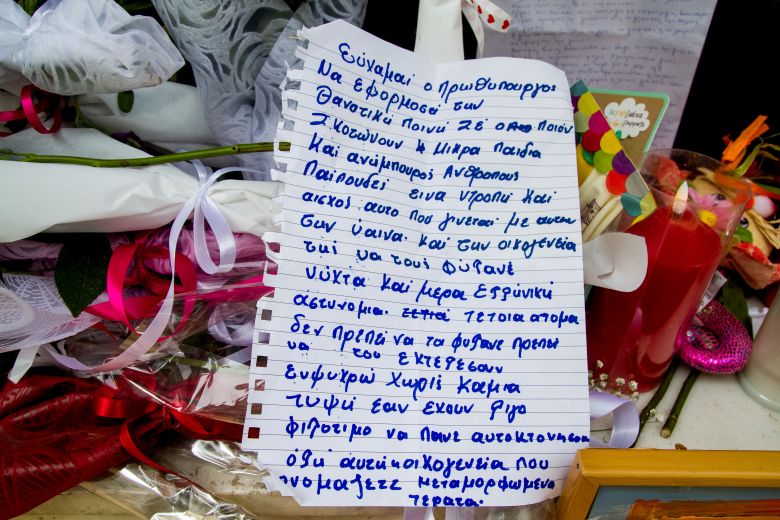 Εύχαμαι ο Πρωθυπουργος
Να εφορμοσει την
Θανατικη Ποινη Σε οποιον
Σκοτώνουν 4 Μικρα Παιδια
Και ανύμπουρος Ανθροπους
Παιπουδες εινα ντροπη και
αισχος αυτο που γινεται με αυτην
την υαινα. και την οικογενεια
της να τους φυλανε
νύχτα και μερα Ελληνική
αστυνομια. τετοια ατομα
δεν πρεπει να τα φυλανε πρεπει
να τους εκτελεσουν
ευψυχρω χωρις καμια
τυψη εαν εχουν λιγο
φιλοτιμο να πανε αυτοκτονησουν
όλη αυτη η οικογενεια που
ονομαζετε μεταμορφωμενα
τερατα.